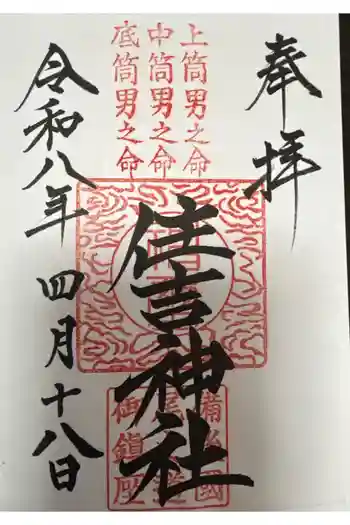 奉拝
上筒男之命
中筒男之命
底筒男之命
住吉神社
令和八年四月十八日
備後國
御鎮座